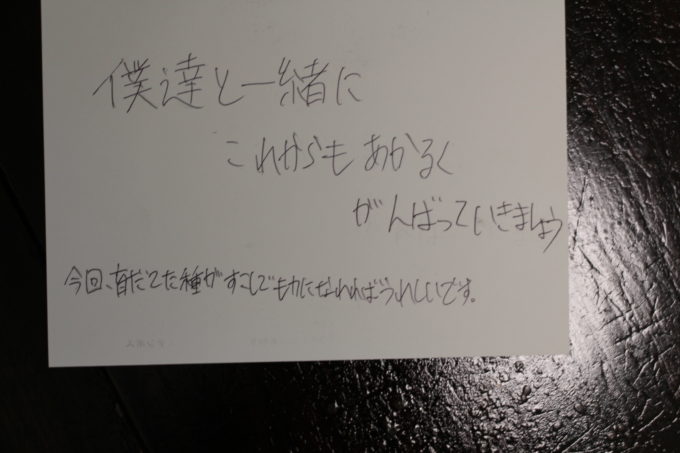 僕達と一緒に
これからもあかるく
がんばっていきましょう
今回、育だてた種がすこしでも力になれればうれしいです。